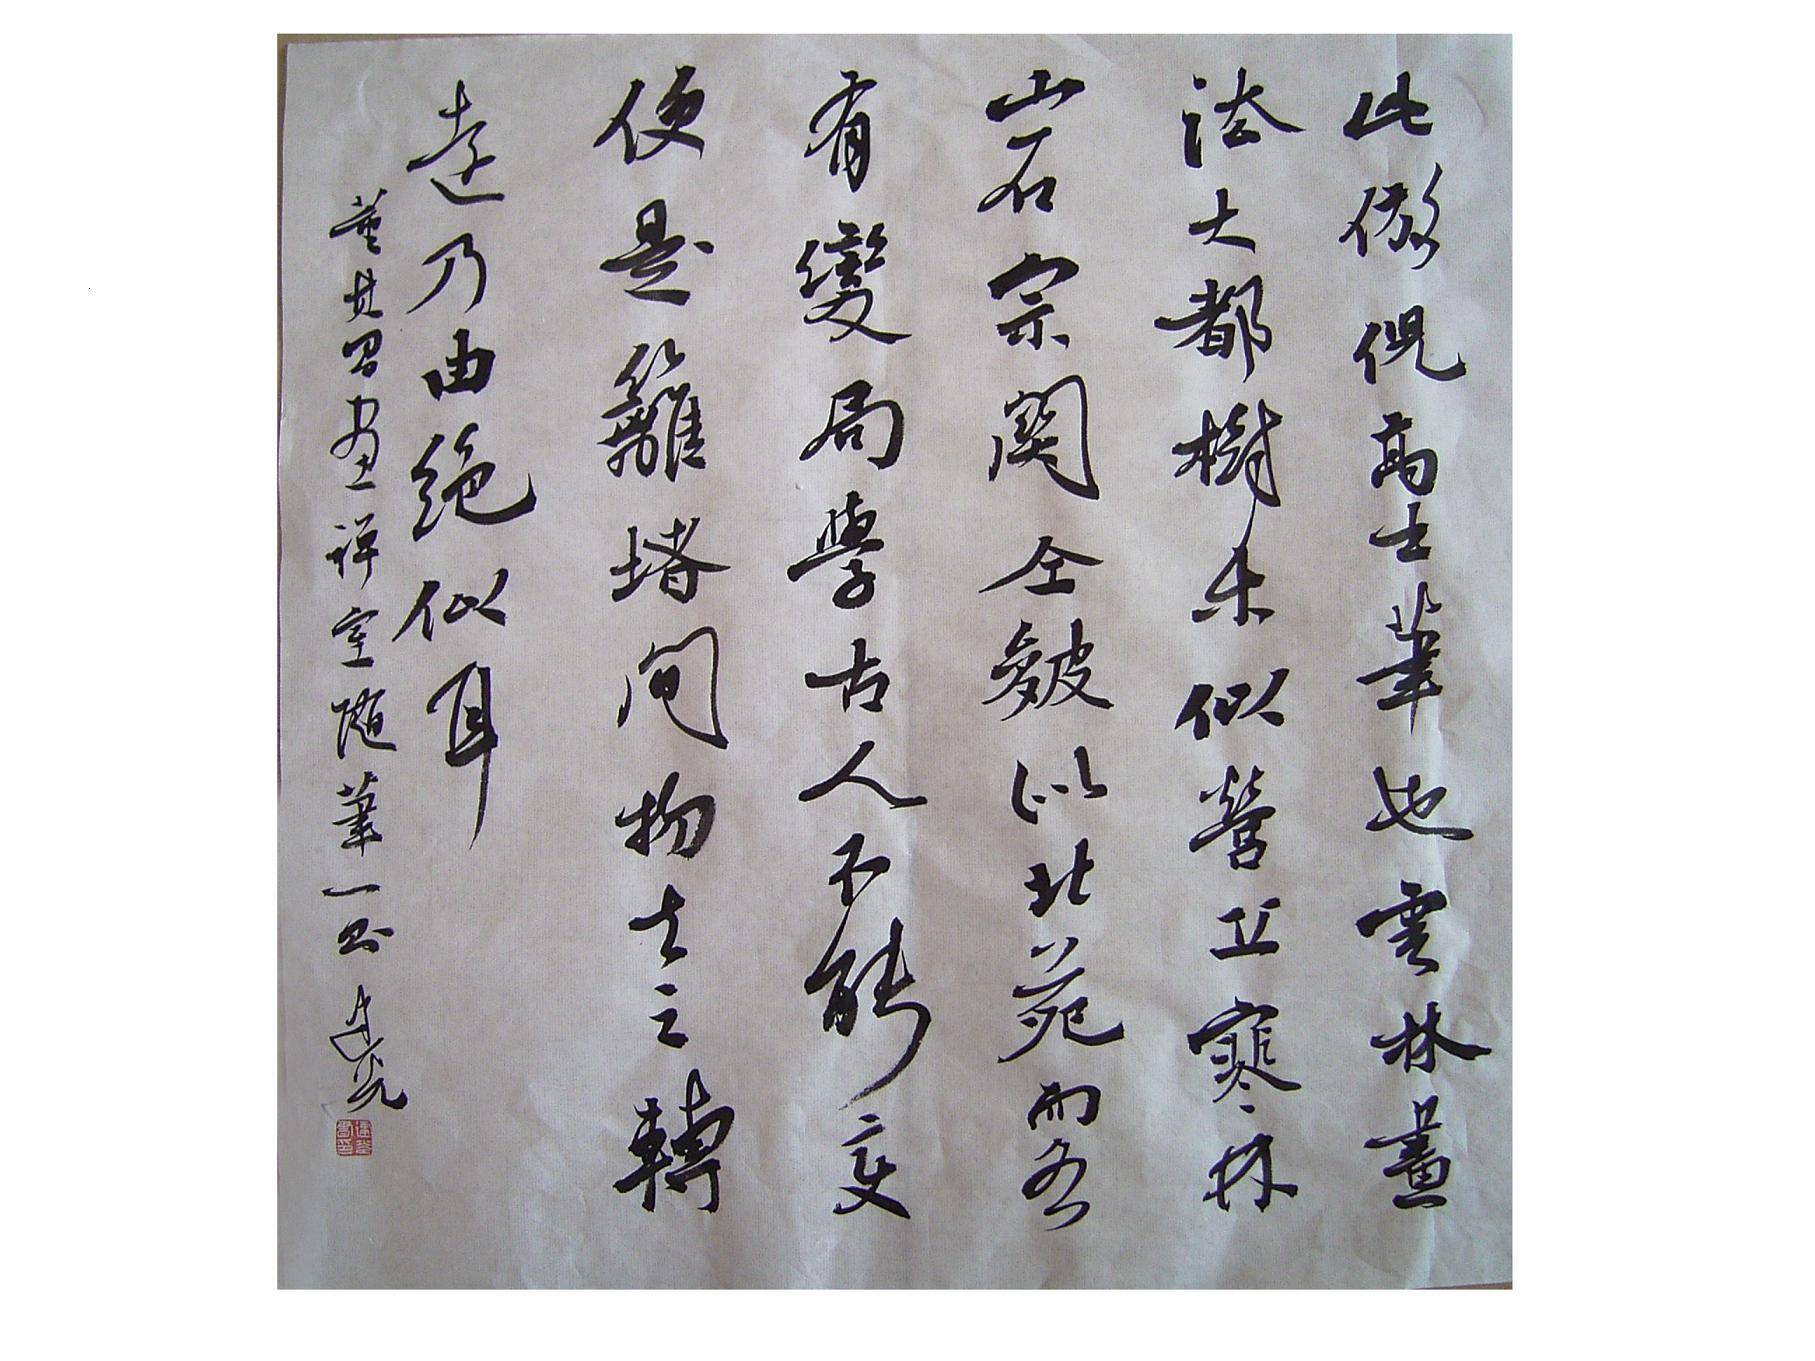 此倣倪高士筆也雲林畫
法大都樹木似營丘寒林
山石宗関仝皴似北苑而各
有變局學古人不能变
便是籬堵间物去之轉
遠乃由絶似耳
董其昌画禅室随筆一則